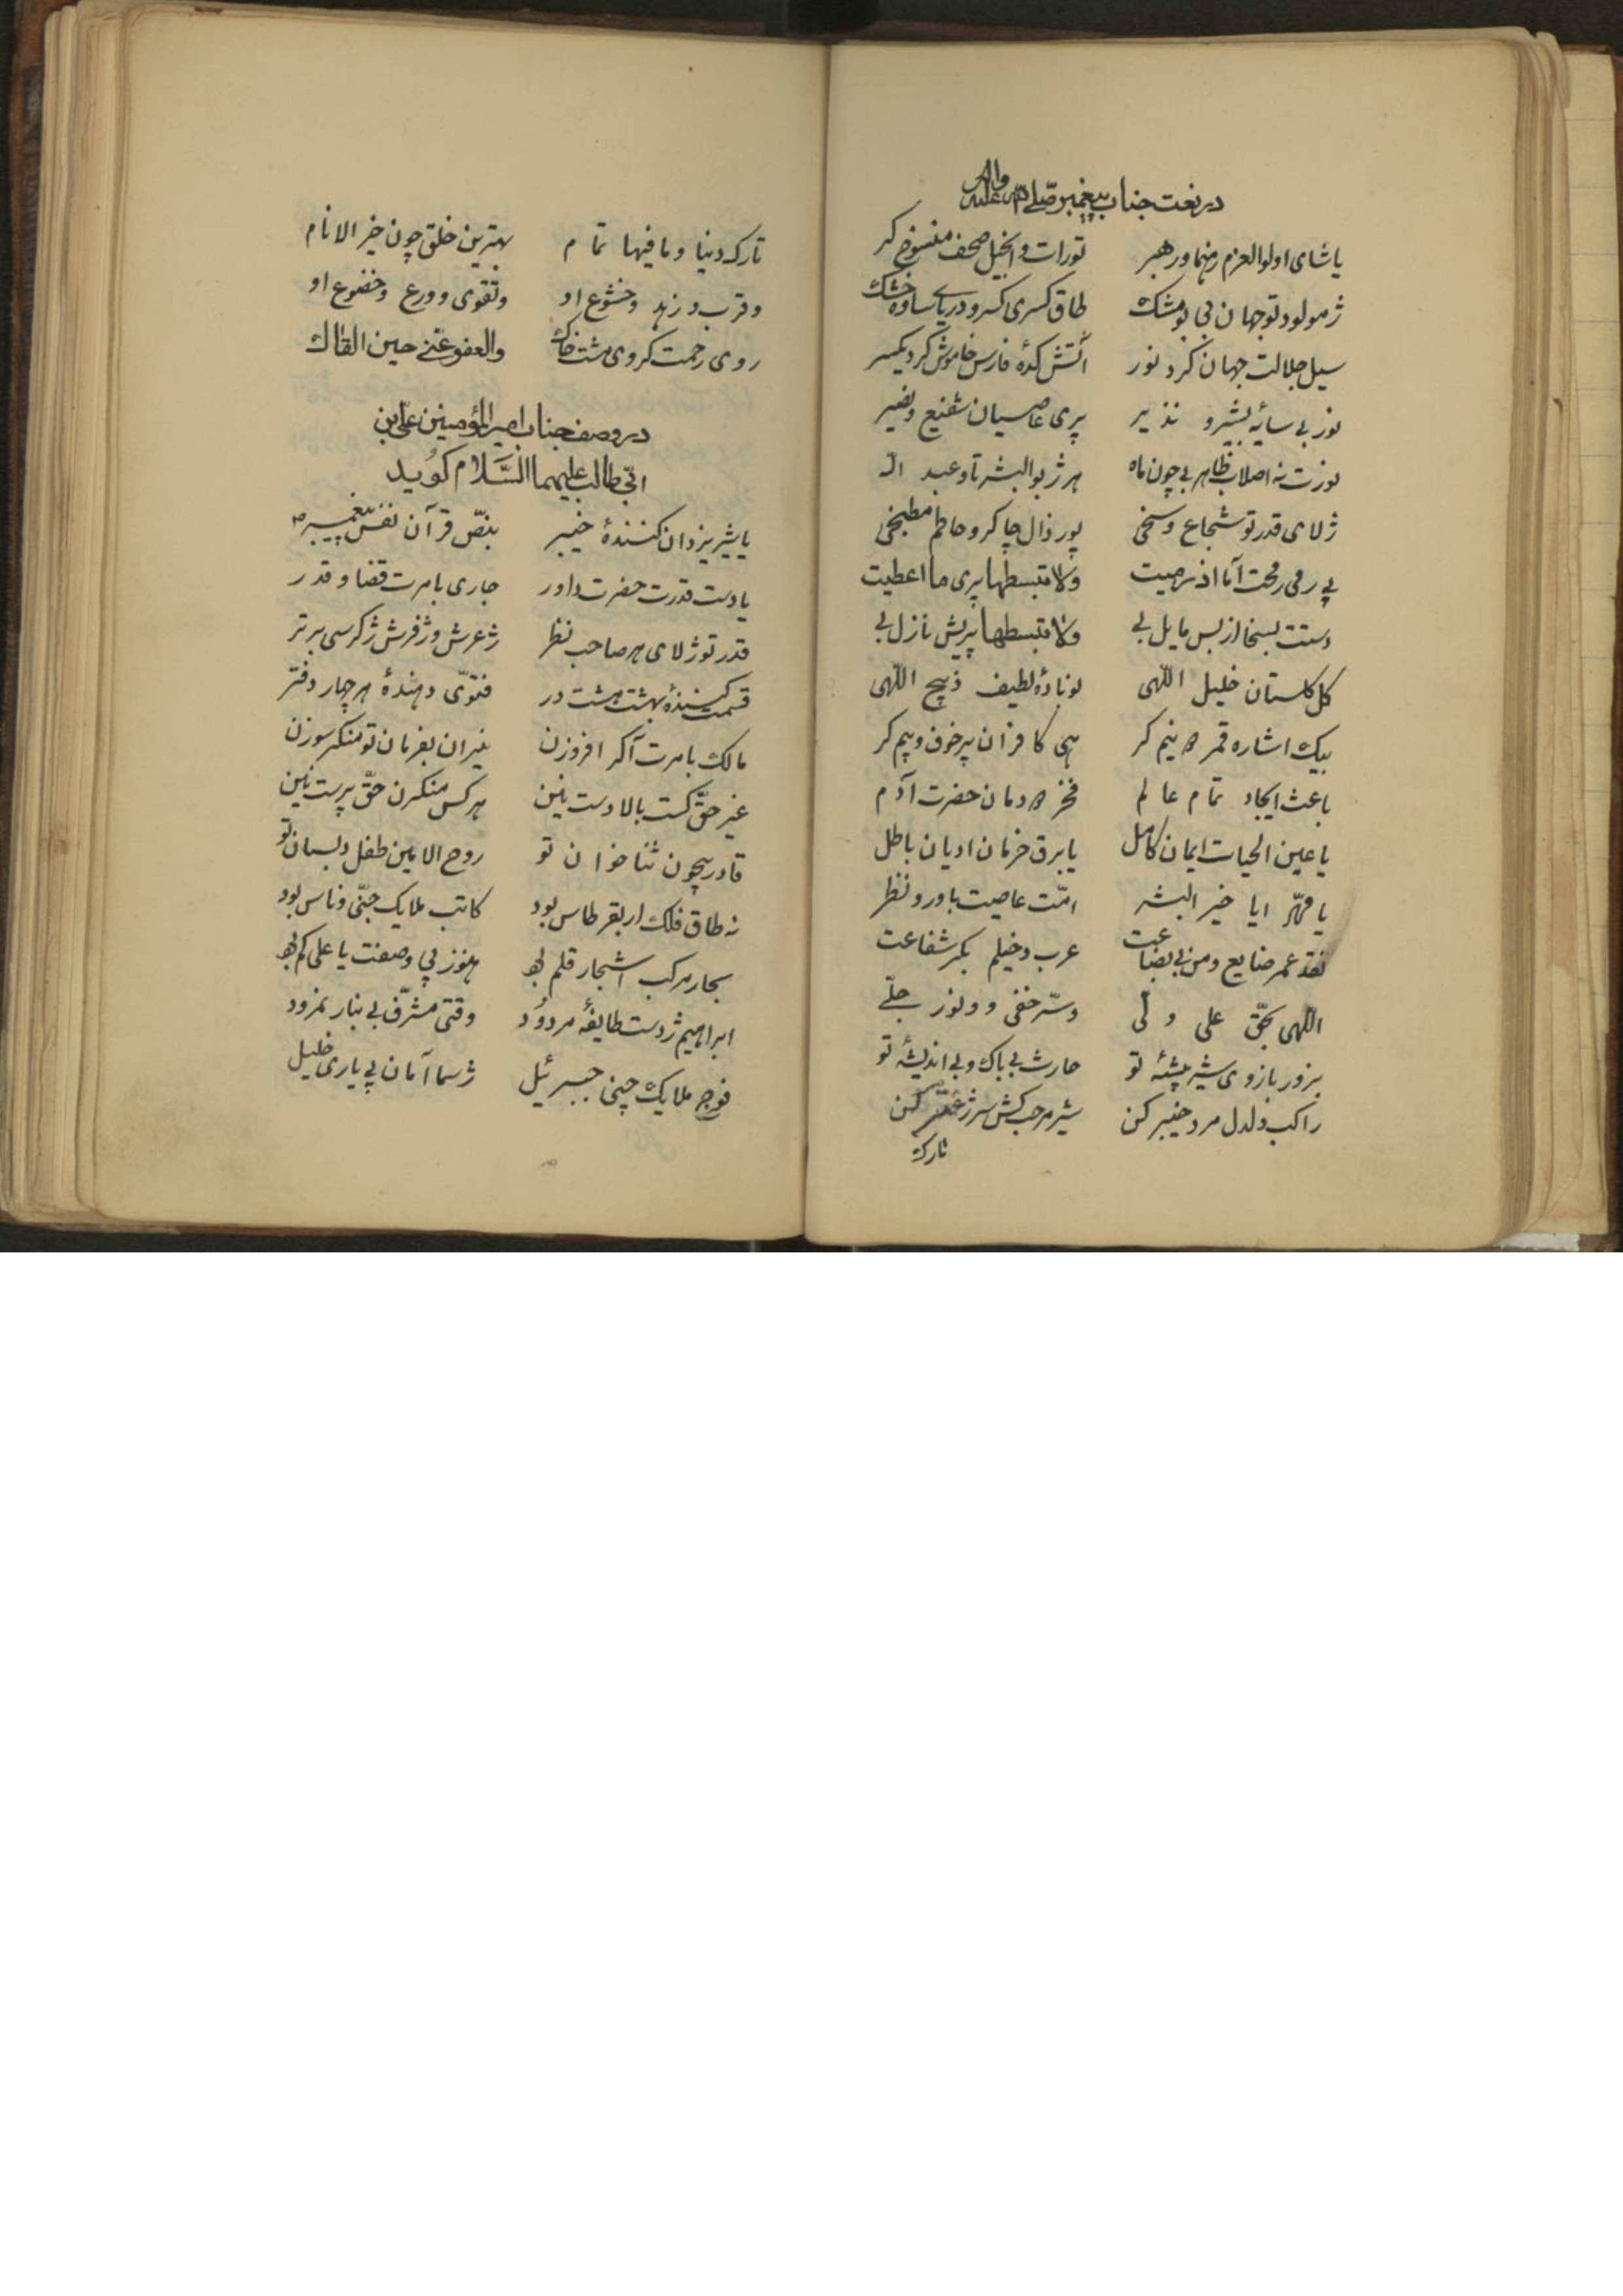 در نعت جناب پیغمبر صلی الله علیه واله
یا شای اولوالعزم رهنما و رهبر تورات و انجیل صحف منسوخ کر
ژ مولود تو جهان بی بو مشک طاق کسری کسر و دریای ساوه خشک
سیل جلالت جهان کرد نور آتش کدهٔ فارس خاموش کرد یکسر
نور بی سایه بشیر و نذیر پری عاصیان شفیع و نصیر
نورت نه اصلاب ظاهر بی چون ماه هر ژ بوالبشر تا و عبد الله
ژ لای قدر تو شجاع و سخی پور ذال چاکر و حاطم مطبخی
پی رمی رمحت آما اذ رمیت ولا تبسطها پری ما اعطیت
دستت بسخا از بس مایل بی ولا تبسطها پریش نازل بی
کل کلستان خلیل اللهی نوبادهٔ لطیف ذبیح اللهی
بیک اشاره قمر دو نیم کر پی کافران پر خوف و بیم کر
باعث ایجاد تمام عالم فخر دودمان حضرت آدم
یا عین الحیات ایمان کامل یا برق خرمان ادیان باطل
یا ایا خیر البشر امّت عاصیت باور و نظر
نقد عمر ضایع و من بی بضاعت عرب دخیلم بکر شفاعت
اللهی بحقّ علی ولی و سرّ خفی و و نور جلی
بزور بازوی شیر پیشهٔ تو حارث بی باک و بی اندیشهٔ تو
راکب دلدل مرد خیبر کن شیر مرحب کش سر ژ عنتر کن
تارک
تارک دنیا و مافیها تمام بهترین خلق چون خیر الانام
و قرب و زهد و خشوع او و تقوی و ورع و خضوع او
روی رحمت کر وی مشت خاک والعفو عنی حین القاک
در وصف جناب امیر المؤمنین علی ابن
ابی طالب علیهما السّلام کوید
یا شیر یزدان کنندهٔ خیبر بنصّ قرآن نفس پیغمبر
یا دست قدرت حضرت داور جاری بامرت قضا و قدر
قدر تو ژ لای هر صاحب نظر ژ عرش و ژ فرش ژ کرسی برتر
قسمت کنندهٔ بهشت هشت در فتوّی دهندهٔ هر چهار دفتر
مالک بامرت آکر افروزن نیران بفرمان تو منکر سوزن
غیر حقّ کست بالا دست نین هر کس منکرن حقّ پرست نین
قادر بیچون ثناخوان تو روح الامین طفل دبستان تو
نه طاق فلک ار بقرطاس بود کاتب ملایک جنّی و ناس بود
بحار مرکب اشجار قلم بو هنوز پی وصفت یا علی کم بو
ابراهیم ژ دست طایفهٔ مردود وقتی مشرّف بی بنار نمرود
فوج ملایک چنی جبرئیل ژ سما آمان پی یاری خلیل